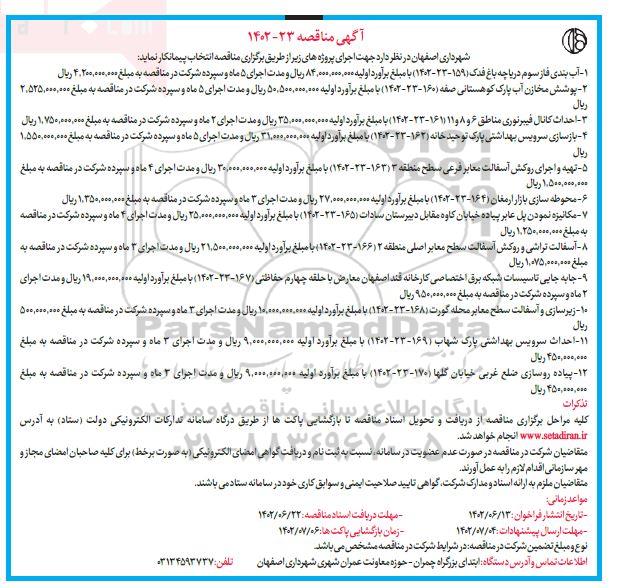 آگهی مناقصه ۲۳-۱۴۰۲
شهرداری اصفهان در نظر دارد جهت اجرای پروژه های زیر از طریق برگزاری مناقصه انتخاب پیمانکار نماید:
۱-آب بندی فاز سوم دریاچه باغ فدک (۱۵۹-۲۳-۱۴۰۲) با مبلغ برآورد اولیه ۸۴,۰۰۰,۰۰۰,۰۰۰ ریال و مدت اجرای ۵ ماه و سپرده شرکت در مناقصه به مبلغ ۴,۲۰۰,۰۰۰,۰۰۰ ریال
۲-پوشش مخازن آب پارک کوهستانی صفه (۱۶۰-۲۳-۱۴۰۲) با مبلغ برآورد اولیه ۵۰,۵۰۰,۰۰۰,۰۰۰ ریال و مدت اجرای ۵ ماه و سپرده شرکت در مناقصه به مبلغ ۲,۵۲۵,۰۰۰,۰۰۰
ریال
۳-احداث کانال فیبرنوری مناطق ۶ و ۸ و ۱۱ (۱۶۱-۲۳-۱۴۰۲) با مبلغ برآورد اولیه ۳۵,۰۰۰,۰۰۰,۰۰۰ ریال و مدت اجرای ۲ ماه و سپرده شرکت در مناقصه به مبلغ ۱,۷۵۰,۰۰۰,۰۰۰ ریال
۴-بازسازی سرویس بهداشتی پارک توحید خانه (۱۶۲-۲۳-۱۴۰۲) با مبلغ برآورد اولیه ۳۱,۰۰۰,۰۰۰,۰۰۰ ریال و مدت اجرای ۵ ماه و سپرده شرکت در مناقصه به مبلغ ۱,۵۵۰,۰۰۰,۰۰۰
ریال
۵-تهیه و اجرای روکش آسفالت معابر فرعی سطح منطقه ۳ (۱۶۳-۲۳-۱۴۰۲) با مبلغ برآورد اولیه ۳۰,۰۰۰,۰۰۰,۰۰۰ ریال و مدت اجرای ۴ ماه و سپرده شرکت در مناقصه به مبلغ
۱,۵۰۰,۰۰۰,۰۰۰ ریال
۶-محوطه سازی بازار ارمغان (۱۶۴-۲۳-۱۴۰۲) با مبلغ برآورد اولیه ۲۷,۰۰۰,۰۰۰,۰۰۰ ریال و مدت اجرای ۳ ماه و سپرده شرکت در مناقصه به مبلغ ۱,۳۵۰,۰۰۰,۰۰۰ ریال
۷-مکانیزه نمودن پل عابر پیاده خیابان کاوه مقابل دبیرستان سادات (۱۶۵-۲۳-۱۴۰۲) با مبلغ برآورد اولیه ۲۵,۰۰۰,۰۰۰,۰۰۰ ریال و مدت اجرای ۴ ماه و سپرده شرکت در مناقصه
به مبلغ ۱,۲۵۰,۰۰۰,۰۰۰ ریال
۸-آسفالت تراشی و روکش آسفالت سطح معابر اصلی منطقه ۲ (۱۶۶-۲۳-۱۴۰۲) با مبلغ برآورد اولیه ۲۱,۵۰۰,۰۰۰,۰۰۰ ریال و مدت اجرای ۳ ماه و سپرده شرکت در مناقصه به
مبلغ ۱,۰۷۵,۰۰۰,۰۰۰ ریال
۹-جابه جایی تاسیسات شبکه برق اختصاصی کارخانه قند اصفهان معارض با حلقه چهارم حفاظتی (۱۶۷-۲۳-۱۴۰۲) با مبلغ برآورد اولیه ۱۹,۰۰۰,۰۰۰,۰۰۰ ریال و مدت اجرای
۲ ماه و سپرده شرکت در مناقصه به مبلغ ۹۵۰,۰۰۰,۰۰۰ ریال
۱۰-زیرسازی و آسفالت سطح معابر محله گورت (۱۶۸-۲۳-۱۴۰۲) با مبلغ برآورد اولیه ۱۰,۰۰۰,۰۰۰,۰۰۰ ریال و مدت اجرای ۳ ماه و سپرده شرکت در مناقصه به مبلغ ۵۰۰,۰۰۰,۰۰۰
ریال
۱۱-احداث سرویس بهداشتی پارک شهاب (۱۶۹-۲۳-۱۴۰۲) با مبلغ برآورد اولیه ۹,۰۰۰,۰۰۰,۰۰۰ ریال و مدت اجرای ۳ ماه و سپرده شرکت در مناقصه به مبلغ
۴۵۰,۰۰۰,۰۰۰ ریال
۱۲-پیاده روسازی ضلع غربی خیابان گلها (۱۷۰-۲۳-۱۴۰۲) با مبلغ برآورد اولیه ۹,۰۰۰,۰۰۰,۰۰۰ ریال و مدت اجرای ۳ ماه و سپرده شرکت در مناقصه به مبلغ
۴۵۰,۰۰۰,۰۰۰ ریال
تذکرات
کلیه مراحل برگزاری مناقصه از دریافت و تحویل اسناد مناقصه تا بازگشایی پاکت ها از طریق درگاه سامانه تدارکات الکترونیکی دولت (ستاد) به آدرس
www.setadiran.ir انجام خواهد شد.
متقاضیان شرکت در مناقصه در صورت عدم عضویت در سامانه، نسبت به ثبت نام و دریافت گواهی امضای الکترونیکی (به صورت برخط) برای کلیه صاحبان امضای مجاز و
مهر سازمانی اقدام لازم را به عمل آورند.
متقاضیان ملزم به ارائه اسناد و مدارک شرکت، گواهی تایید صلاحیت ایمنی و سوابق کاری خود در سامانه ستاد می باشند.
مواعد زمانی:
-تاریخ انتشار فراخوان: ۱۴۰۲/۰۶/۱۳ -مهلت دریافت اسناد مناقصه: ۱۴۰۲/۰۶/۲۲
-مهلت ارسال پیشنهادات: ۱۴۰۲/۰۷/۰۴ -زمان بازگشایی پاکت ها: ۱۴۰۲/۰۷/۰۶
نوع و مبلغ تضمین شرکت در مناقصه: در شرایط شرکت در مناقصه مشخص می باشد.
اطلاعات تماس و آدرس دستگاه: ابتدای بزرگراه چمران - حوزه معاونت عمران شهری شهرداری اصفهان تلفن: ۰۳۱۳۴۵۹۳۷۳۷
ParsNamadData
پایگاه اطلاع رسانی مناقصه و مزایده
۰۲۱-۸۸۳۴۹۶۷۰-۵